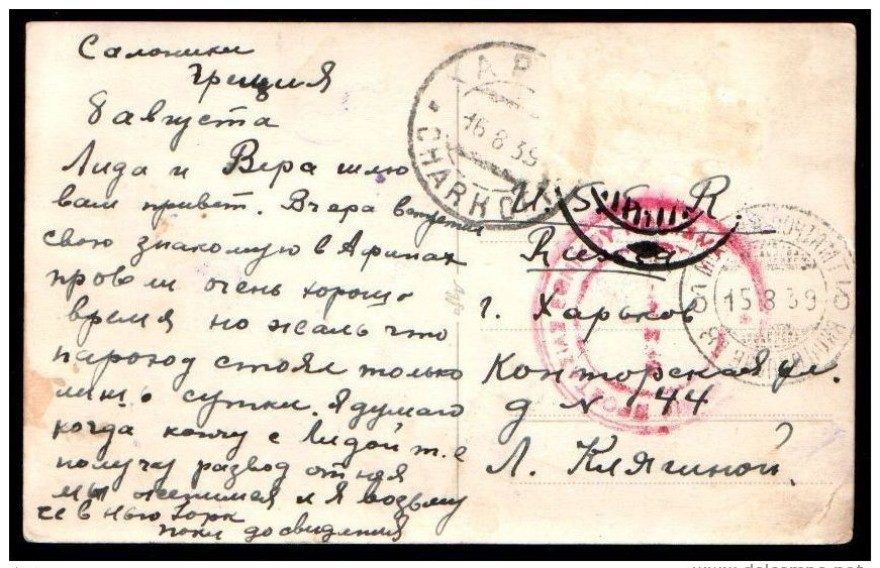 Салоники
Греция
8 августа
Лида и Вера шлю
вам привет. Вчера встретил
свою знакомую в Афинах
провели очень хорошо
время но жаль что
пароход стоял только
лишь сутки. Я думаю
когда кончу с Лидой т.е
получу развод от нея
мы женимся и я возьму
ее в Нью Йорк
пока до свидания
ХАР
16 8 39
CHARKO
U. S. S. R.
Russia
г. Харьков
Конторская ул.
д N 44
Л. Клягиной
15 8 39
www.delcampe.net